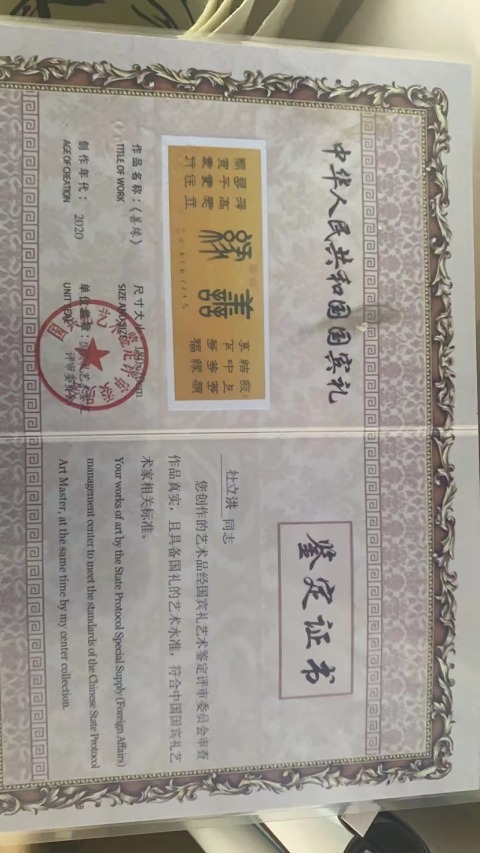 中华人民共和国国宾礼
善缘
作品名称：《善缘》
TITLE OF WORK
尺寸大小
SIZE AND SIZE
创作年代： 2020
AGE OF CREATION
单位盖章：
UNIT
鉴定证书
杜立洪 同志
您创作的艺术品经国宾礼艺术鉴定评审委员会审查
作品真实，且具备国礼的艺术水准，符合中国国宾礼艺
术家相关标准。
Your works of art by the State Protocol Special Supply (Foreign Affairs)
management center to meet the standards of the Chinese State Protocol
Art Master, at the same time by my center collection.